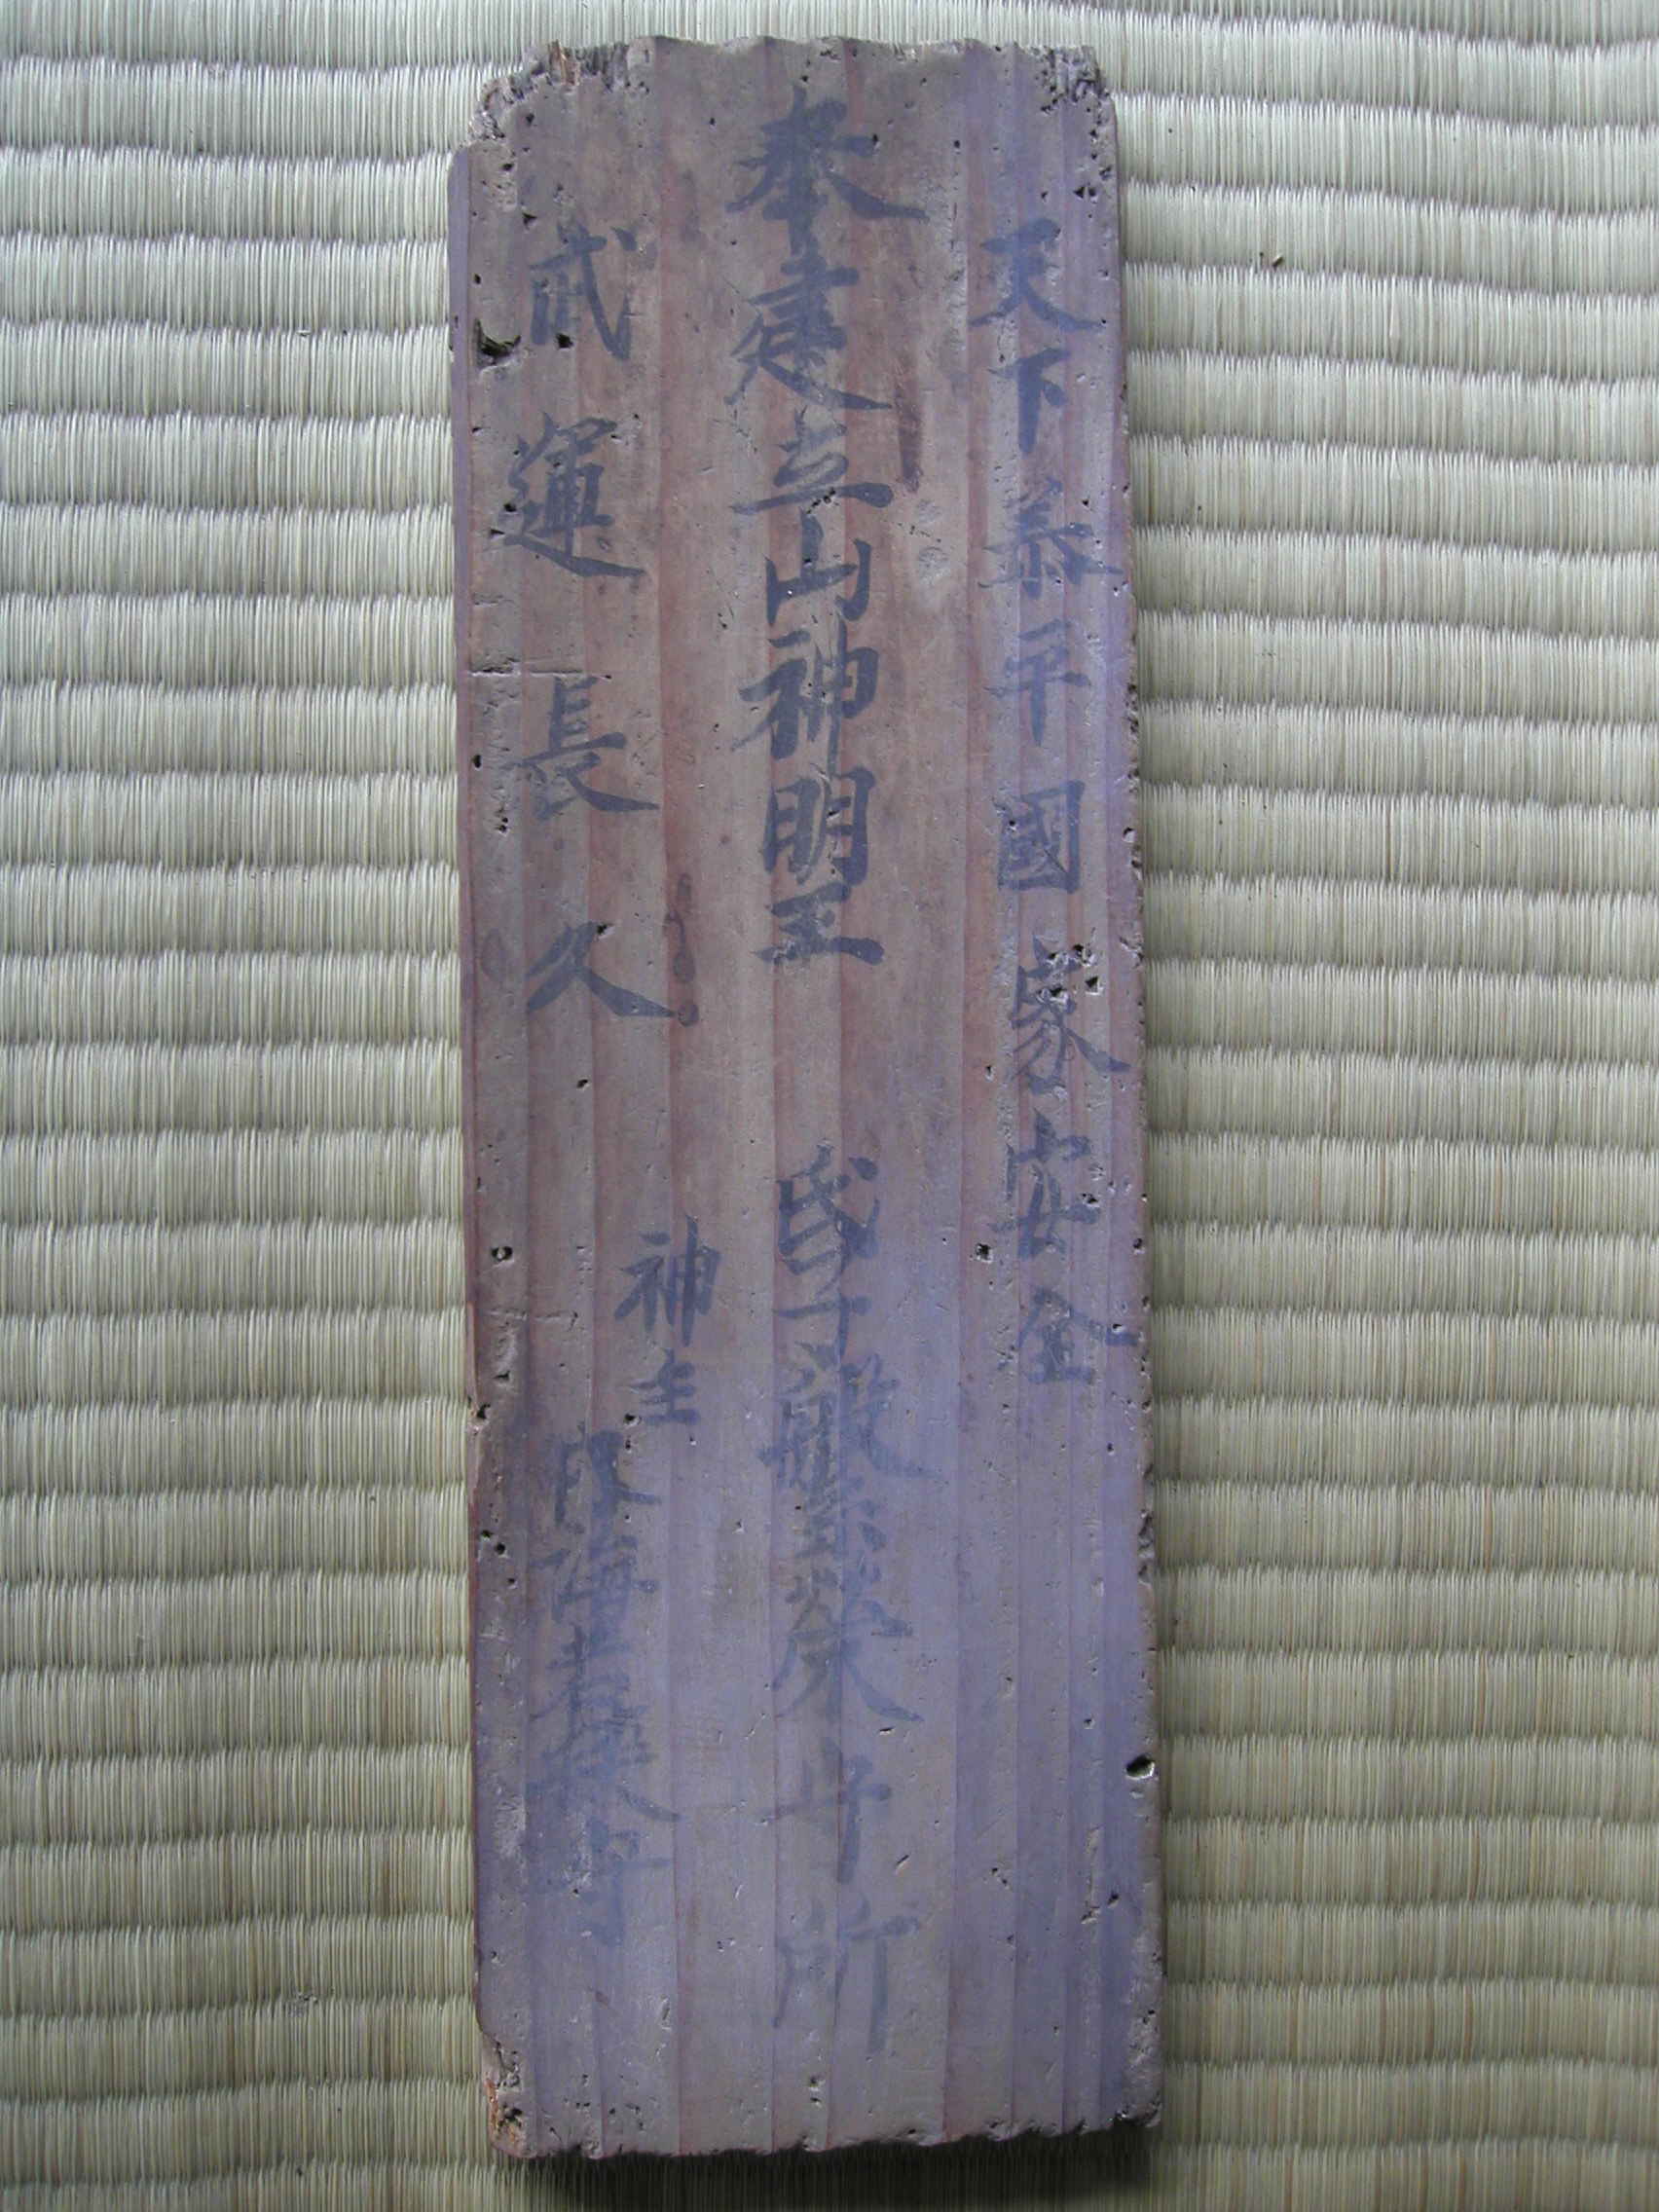 天下泰平國家安全
奉建立山神明王 氏子繁榮 所
武運長久
神主
内海若狭守